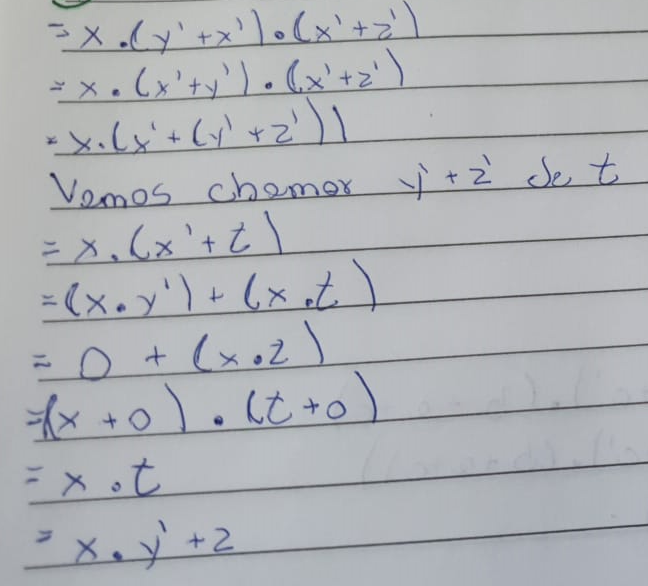 = x.(y'+x').(x'+z')
= x.(x'+y').(x'+z')
= x.(x'+(y'+z'))
Vamos chamar y'+z' de t
= x.(x'+t)
=(x.y')+(x.t)
= 0 + (x.z)
=(x+0).(t+0)
= x.t
= x.y'+z